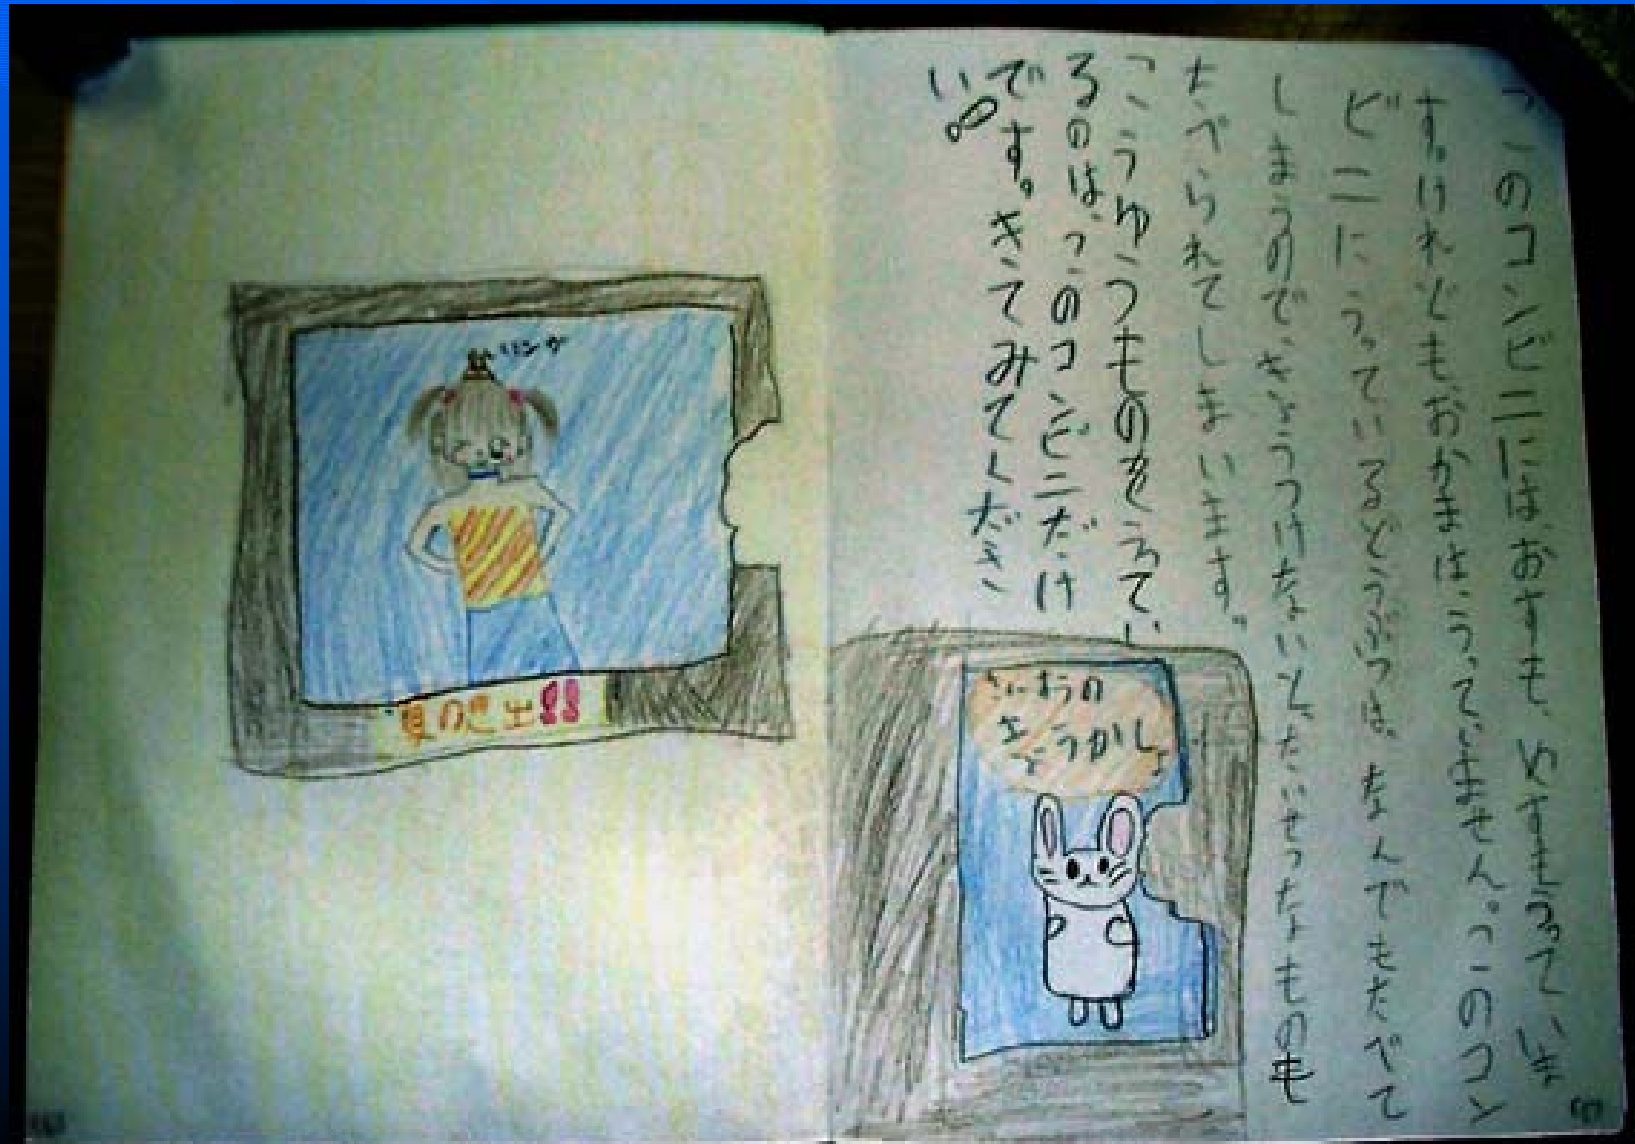 このコンビニには、おすも、めすもうっていま
す。けれども、おかまは、うっていません。このコン
ビニに、うっているどうぶつは、なんでもたべて
しまうので、きょうつけないと、たいせつなものも
たべられてしまいます。
こうゆうものをうってい
るのは、このコンビニだけ
です。きてみてくださ
い。
きょうかしょ
リング
夏の思出!!